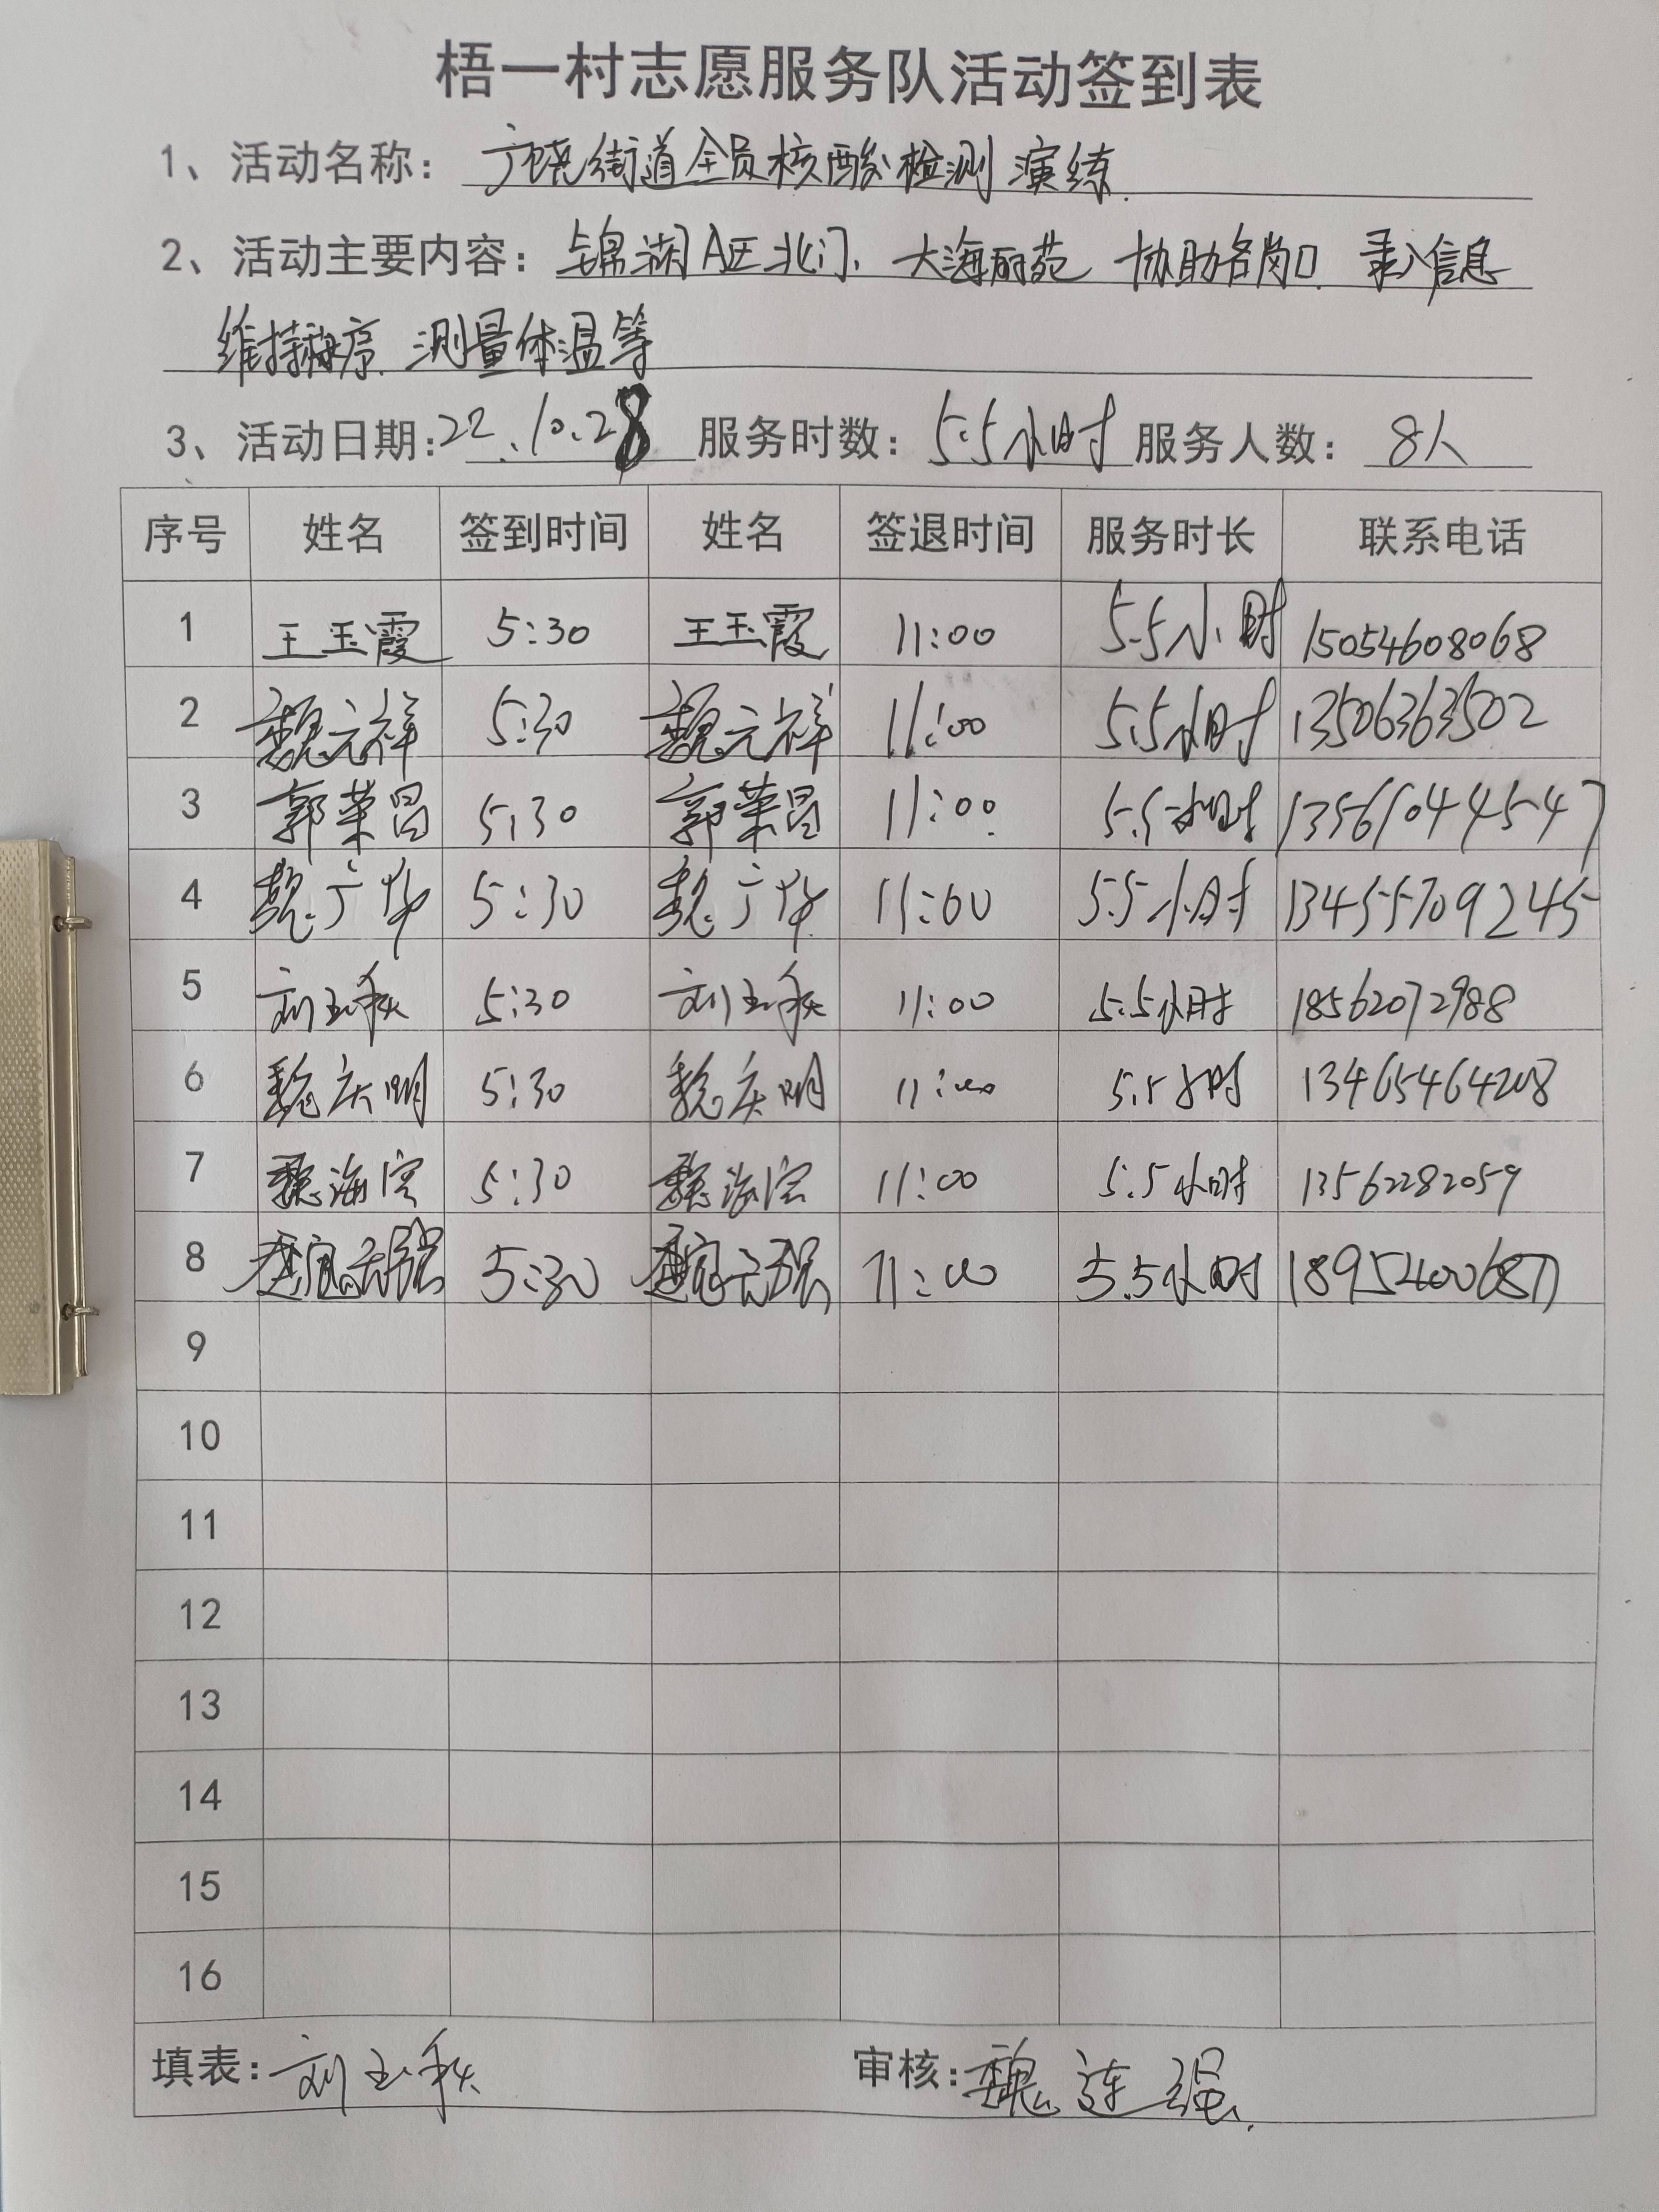 梧一村志愿服务队活动签到表
1、活动名称：广饶街道全员核酸检测演练.
2、活动主要内容：锦湖A区北门、大海丽苑 协助各岗口、录入信息
维持秩序、测量体温等
3、活动日期：22.10.28 服务时数：5.5小时 服务人数：8人
序号 姓名 签到时间 姓名 签退时间 服务时长 联系电话
1 王玉霞 5:30 王玉霞 11:00 5.5小时 15054608068
2 魏元祥 5:30 魏元祥 11:00 5.5小时 13506363502
3 郭荣昌 5:30 郭荣昌 11:00 5.5小时 13561044547
4 魏广华 5:30 魏广华 11:00 5.5小时 13455709245
5 刘玉秋 5:30 刘玉秋 11:00 5.5小时 18562072988
6 魏庆明 5:30 魏庆明 11:00 5.5小时 13465464208
7 魏海 5:30 魏海 11:00 5.5小时 13562282059
8 5:30 11:00 5.5小时
9
10
11
12
13
14
15
16
填表：刘玉秋 审核：魏连强